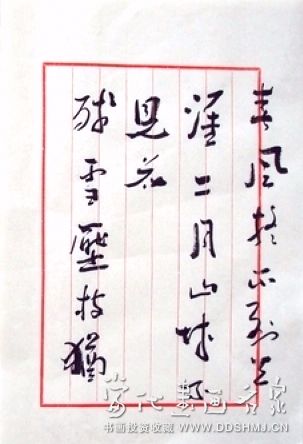 春风疑不到天
涯二月山城未
见花
残雪压枝犹
当代书画名家
书画投资收藏 WWW.DDSHMJ.CN